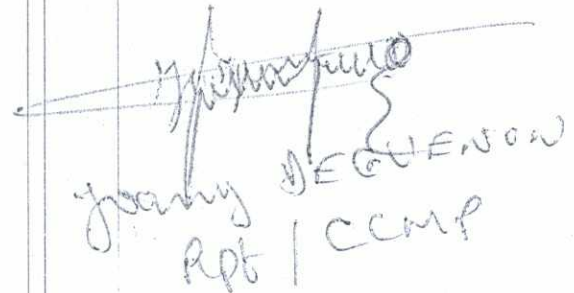 Yvany DEGUENON
Rpt / CCMP